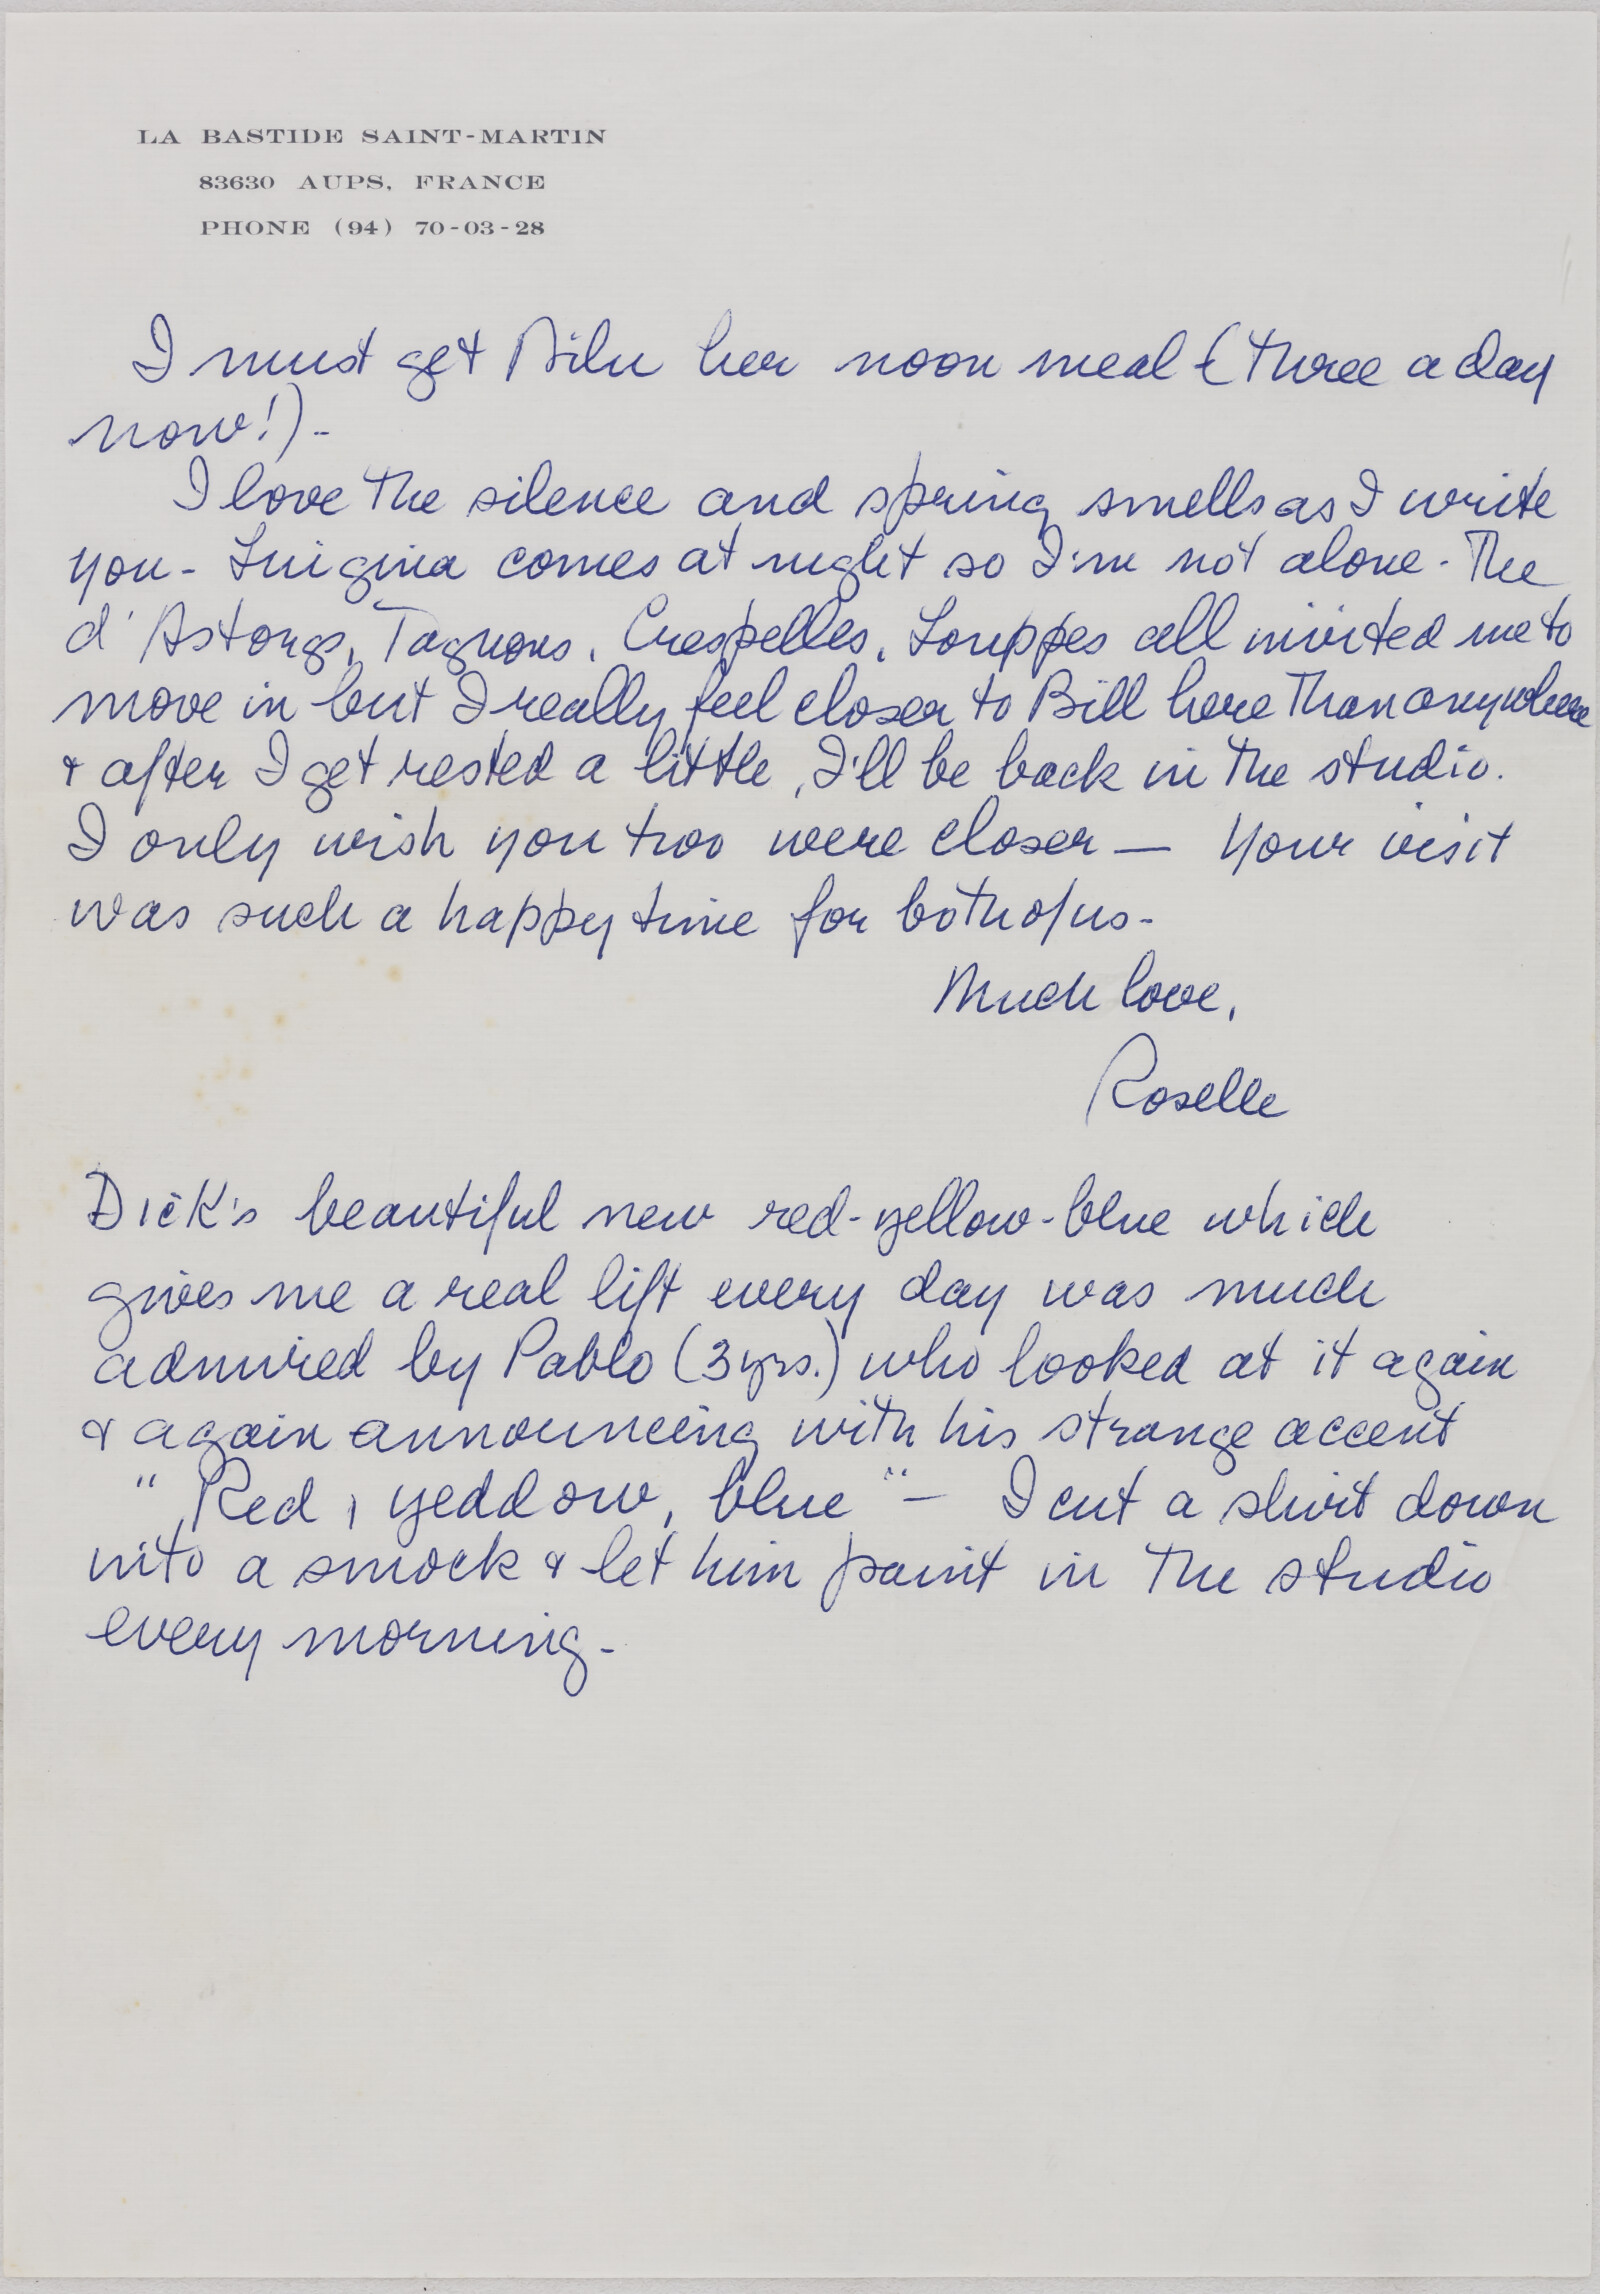 LA BASTIDE SAINT-MARTIN
83630 AUPS, FRANCE
PHONE (94) 70-03-28
I must get her noon meal (three a day
now!)-
I love the silence and spring smells as I write
you - Luigina comes at night so I'm not alone. The
d'Astorgs, Tagnons, Crespelles, Louppes all invited me to
move in but I really feel closer to Bill here than anywhere
& after I get rested a little, I'll be back in the studio.
I only wish you two were closer — Your visit
was such a happy time for both of us-
Much love,
Roselle
Dick's beautiful new red-yellow-blue which
gives me a real lift every day was much
admired by Pablo (3 yrs.) who looked at it again
& again announcing with his strange accent
"Red, yeddow, blue" — I cut a shirt down
into a smock & let him paint in the studio
every morning-